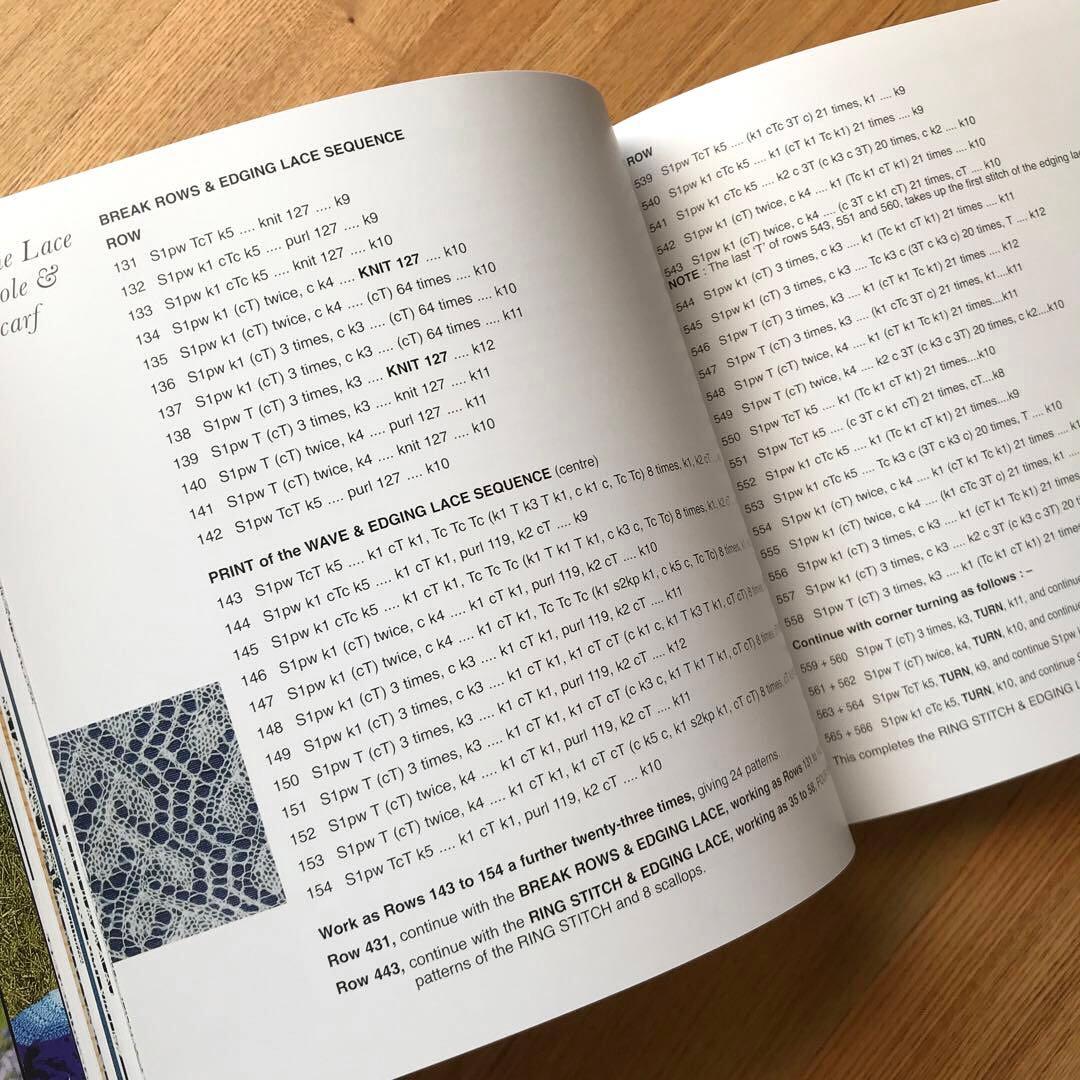 ne Lace
ole &
carf
BREAK ROWS & EDGING LACE SEQUENCE
ROW
131 S1pw TcT k5 .... knit 127 .... k9
132 S1pw k1 cTc k5 .... purl 127 .... k9
133 S1pw k1 cTc k5 .... knit 127 .... k10
134 S1pw k1 (cT) twice, c k4 .... KNIT 127 .... k10
135 S1pw k1 (cT) twice, c k4 .... (cT) 64 times .... k10
136 S1pw k1 (cT) 3 times, c k3 .... (cT) 64 times .... k10
137 S1pw k1 (cT) 3 times, c k3 .... (cT) 64 times .... k11
138 S1pw T (cT) 3 times, k3 .... KNIT 127 .... k12
139 S1pw T (cT) 3 times, k3 .... knit 127 .... k11
140 S1pw T (cT) twice, k4 .... purl 127 .... k11
141 S1pw T (cT) twice, k4 .... knit 127 .... k10
142 S1pw TcT k5 .... purl 127 .... k10
PRINT of the WAVE & EDGING LACE SEQUENCE (centre)
143 S1pw TcT k5 .... k1 cT k1, Tc Tc Tc (k1 T k3 T k1, c k1 c, Tc Tc) 8 times, k1, k2 cT
144 S1pw k1 cTc k5 .... k1 cT k1, purl 119, k2 cT .... k9
145 S1pw k1 cTc k5 .... k1 cT k1, Tc Tc Tc (k1 T k1 T k1, c k3 c, Tc Tc) 8 times, k1, k2 cT
146 S1pw k1 (cT) twice, c k4 .... k1 cT k1, purl 119, k2 cT .... k10
147 S1pw k1 (cT) twice, c k4 .... k1 cT k1, Tc Tc Tc (k1 s2kp k1, c k5 c, Tc Tc) 8 times,
148 S1pw k1 (cT) 3 times, c k3 .... k1 cT k1, purl 119, k2 cT .... k11
149 S1pw k1 (cT) 3 times, c k3 .... k1 cT k1, k1 cT cT (c k1 c, k1 T k3 T k1, cT cT) 8 times
150 S1pw T (cT) 3 times, k3 .... k1 cT k1, purl 119, k2 cT .... k12
151 S1pw T (cT) 3 times, k3 .... k1 cT k1, k1 cT cT (c k3 c, k1 T k1 T k1, cT cT) 8 times
152 S1pw T (cT) twice, k4 .... k1 cT k1, purl 119, k2 cT .... k11
153 S1pw T (cT) twice, k4 .... k1 cT k1, k1 cT cT (c k5 c, k1 s2kp k1, cT cT) 8 times,
154 S1pw TcT k5 .... k1 cT k1, purl 119, k2 cT .... k10
Work as Rows 143 to 154 a further twenty-three times, giving 24 patterns.
Row 431, continue with the BREAK ROWS & EDGING LACE, working as Rows 131 to
Row 443, continue with the RING STITCH & EDGING LACE, working as 35 to 58,
patterns of the RING STITCH and 8 scallops.
ROW
539 S1pw TcT k5 .... (k1 cTc 3T c) 21 times, k1 .... k9
540 S1pw k1 cTc k5 .... k1 (cT k1 Tc k1) 21 times .... k9
541 S1pw k1 cTc k5 .... k2 c 3T (c k3 c 3T) 20 times, c k2 .... k10
542 S1pw k1 (cT) twice, c k4 .... k1 (Tc k1 cT k1) 21 times .... k10
543 S1pw k1 (cT) twice, c k4 .... (c 3T c k1 cT) 21 times, cT .... k10
NOTE : The last 'T' of rows 543, 551 and 560, takes up the first stitch of the edging lac
544 S1pw k1 (cT) 3 times, c k3 .... k1 (Tc k1 cT k1) 21 times .... k11
545 S1pw k1 (cT) 3 times, c k3 .... Tc k3 c (3T c k3 c) 20 times, T .... k12
546 S1pw T (cT) 3 times, c k3 .... k1 (cT k1 Tc k1) 21 times .... k12
547 S1pw T (cT) 3 times, k3 .... (k1 cTc 3T c) 21 times, k1....k11
548 S1pw T (cT) twice, k4 .... k1 (cT k1 Tc k1) 21 times....k11
549 S1pw T (cT) twice, k4 .... k2 c 3T (c k3 c 3T) 20 times, c k2....k10
550 S1pw TcT k5 .... k1 (Tc k1 cT k1) 21 times....k10
551 S1pw TcT k5 .... (c 3T c k1 cT) 21 times, cT....k8
552 S1pw k1 cTc k5 .... k1 (Tc k1 cT k1) 21 times....k9
553 S1pw k1 cTc k5 .... Tc k3 c (3T c k3 c) 20 times, T .... k10
554 S1pw k1 (cT) twice, c k4 .... k1 (cT k1 Tc k1) 21 times ....
555 S1pw k1 (cT) twice, c k4 .... (k1 cTc 3T c) 21 times, k1 ....
556 S1pw k1 (cT) 3 times, c k3 .... k1 (cT k1 Tc k1) 21 times
557 S1pw k1 (cT) 3 times, c k3 .... k2 c 3T (c k3 c 3T) 20
558 S1pw T (cT) 3 times, k3 .... k1 (Tc k1 cT k1) 21 times
Continue with corner turning as follows : –
559 + 560 S1pw T (cT) 3 times, k3, TURN, k11, and continue
561 + 562 S1pw T (cT) twice, k4, TURN, k10, and continue
563 + 564 S1pw TcT k5, TURN, k9, and continue S1pw
565 + 566 S1pw k1 cTc k5, TURN, k10, and continue S
This completes the RING STITCH & EDGING L